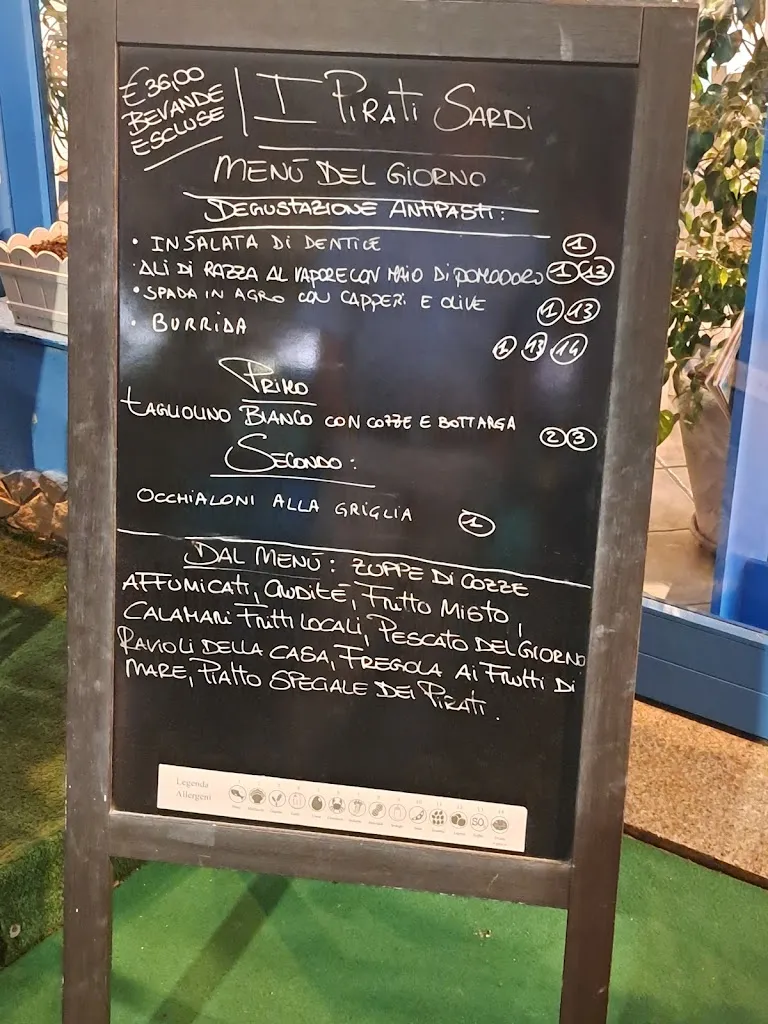 €36,00
BEVANDE
ESCLUSE
I PIRATI SARDI
MENÙ DEL GIORNO
DEGUSTAZIONE ANTIPASTI:
• INSALATA DI DENTICE 1
• ALI DI RAZZA AL VAPORE CON MAIO DI POMODORO 1 13
• SPADA IN AGRO CON CAPPERI E OLIVE 1 13
• BURRIDA 1 13 14
PRIMO
TAGLIOLINO BIANCO CON COZZE E BOTTARGA 2 3
SECONDO:
OCCHIALONI ALLA GRIGLIA 1
DAL MENÙ: ZUPPE DI COZZE
AFFUMICATI, CRUDITÉ, FRITTO MISTO,
CALAMARI FRITTI LOCALI, PESCATO DEL GIORNO
RAVIOLI DELLA CASA, FREGOLA AI FRUTTI DI
MARE, PIATTO SPECIALE DEI PIRATI.
Legenda
Allergeni
SO